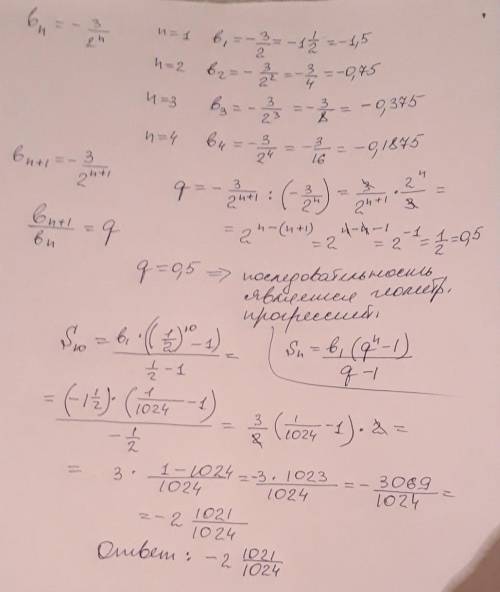 bₙ = -3/2ⁿ
n=1 b₁ = -3/2 = -1 1/2 = -1,5
n=2 b₂ = -3/2² = -3/4 = -0,75
n=3 b₃ = -3/2³ = -3/8 = -0,375
n=4 b₄ = -3/2⁴ = -3/16 = -0,1875
bₙ₊₁ = -3/2ⁿ⁺¹
q = -3/2ⁿ⁺¹ : (-3/2ⁿ) = 3/2ⁿ⁺¹ · 2ⁿ/3 =
bₙ₊₁/bₙ = q
= 2ⁿ⁻⁽ⁿ⁺¹⁾ = 2ⁿ⁻ⁿ⁻¹ = 2⁻¹ = 1/2 = 0,5
q = 0,5 ⇒ последовательность
является геометр.
прогрессией.
S₁₀ = b₁ · ((1/2)¹⁰ - 1) / (1/2 - 1) =
Sₙ = b₁(qⁿ - 1) / (q - 1)
= (-1 1/2) · (1/1024 - 1) / (-1/2) = 3/2 (1/1024 - 1) · 2 =
= 3 · (1-1024)/1024 = -3 · 1023/1024 = -3069/1024 =
= -2 1021/1024
Ответ: -2 1021/1024